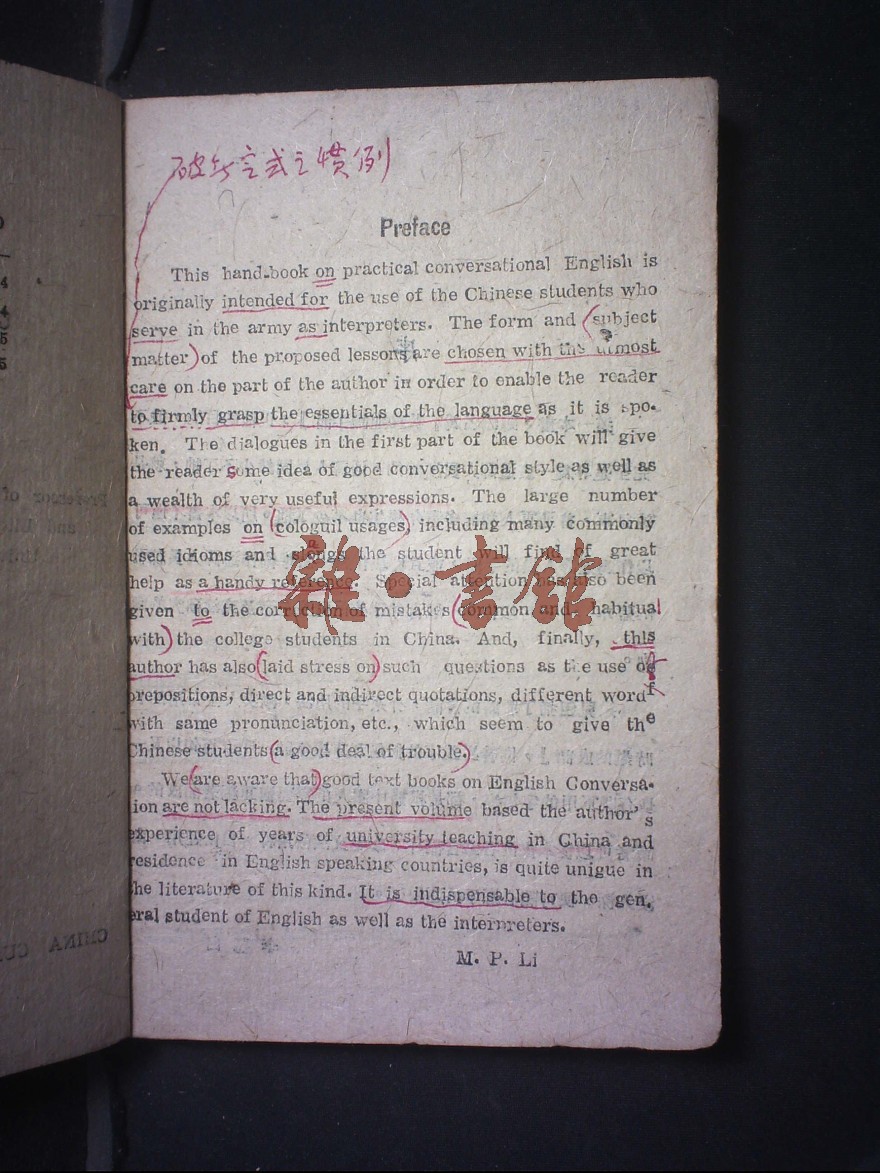 破
式之慣例
Preface
This hand-book on practical conversational English is
originally intended for the use of the Chinese students who
serve in the army as interpreters. The form and (subject
matter) of the proposed lessons are chosen with the utmost
care on the part of the author in order to enable the reader
to firmly grasp the essentials of the language as it is spo-
ken. The dialogues in the first part of the book will give
the reader some idea of good conversational style as well as
a wealth of very useful expressions. The large number
of examples on (cologuil usages) including many commonly
used idioms and slangs the student will find of great
help as a handy reference. Special attention has also been
given to the correction of mistakes (common and habitual
with) the college students in China. And, finally, this
author has also (laid stress on) such questions as the use of
prepositions, direct and indirect quotations, different word
with same pronunciation, etc., which seem to give the
Chinese students (a good deal of trouble.)
We (are aware that) good text books on English Conversa-
tion are not lacking. The present volume based the author's
experience of years of university teaching in China and
residence in English speaking countries, is quite unigue in
the literature of this kind. It is indispensable to the gen,
eral student of English as well as the interpreters.
M. P. Li
雜·書館
4
4
5
5
CHINA CU